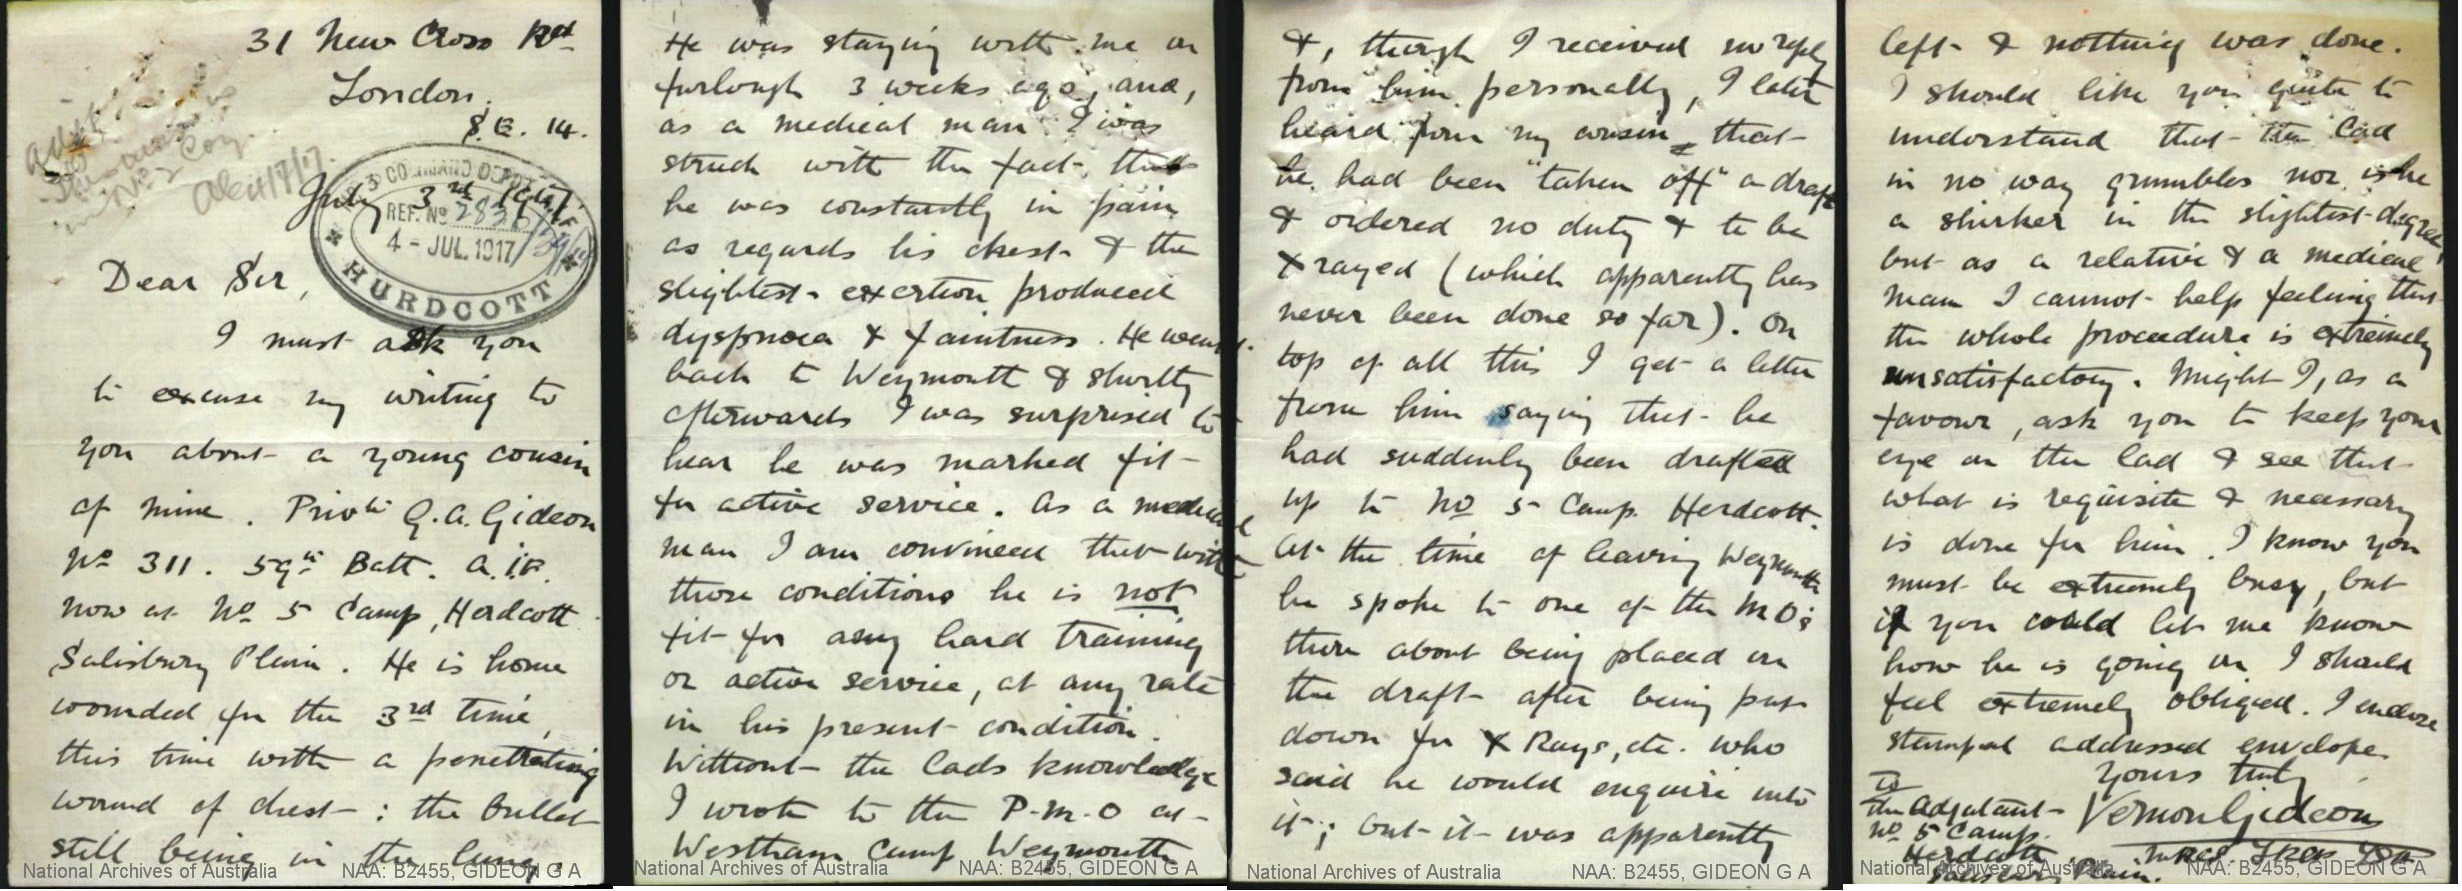 31 New Cross Rd
London.
S.E. 14.
July 3rd 1917.
No 3 COMMAND DEPOT
REF. No 2836
4 - JUL. 1917
HURDCOTT
Dear Sir,
I must ask you
to excuse my writing to
you about a young cousin
of mine. Private G.A. Gideon
No 311. 59th Batt. A.I.F.
now at No 5 Camp, Herdcott
Salisbury Plain. He is home
wounded for the 3rd time,
this time with a penetrating
wound of chest: the bullet
still being in the lung.
National Archives of Australia NAA: B2455, GIDEON G A
He was staying with me on
furlough 3 weeks ago, and,
as a medical man I was
struck with the fact, that
he was constantly in pain
as regards his chest & the
slightest exertion produced
dyspnoea & faintness. He went
back to Weymouth & shortly
afterwards I was surprised to
hear he was marked fit
for active service. As a medical
man I am convinced that with
those conditions he is not
fit for any hard training
or active service, at any rate
in his present condition.
Without the lads knowledge
I wrote to the P.M.O at
Westham Camp Weymouth
National Archives of Australia NAA: B2455, GIDEON G A
&, though I received no reply
from him personally, I later
heard from my cousin that
he had been "taken off" a draft
& ordered no duty & to be
X rayed (which apparently has
never been done so far). On
top of all this I get a letter
from him saying that he
had suddenly been drafted
up to No 5 Camp Herdcott.
At the time of leaving Weymouth
he spoke to one of the M.Os
there about being placed on
the draft after being put
down for X Rays, etc. who
said he would enquire into
it; but it was apparently
National Archives of Australia NAA: B2455, GIDEON G A
left & nothing was done.
I should like you quite to
understand that the lad
in no way grumbles nor is he
a shirker in the slightest degree,
but as a relative & a medical
man I cannot help feeling that
the whole procedure is extremely
unsatisfactory. Might I, as a
favour, ask you to keep your
eye on the lad & see that
what is requisite & necessary
is done for him. I know you
must be extremely busy, but
if you could let me know
how he is going on I should
feel extremely obliged. I enclose
stamped addressed envelope.
Yours truly
Vernon Gideon
To
The Adjutant
No 5 Camp.
Herdcott
Salisbury Plain.
National Archives of Australia NAA: B2455, GIDEON G A